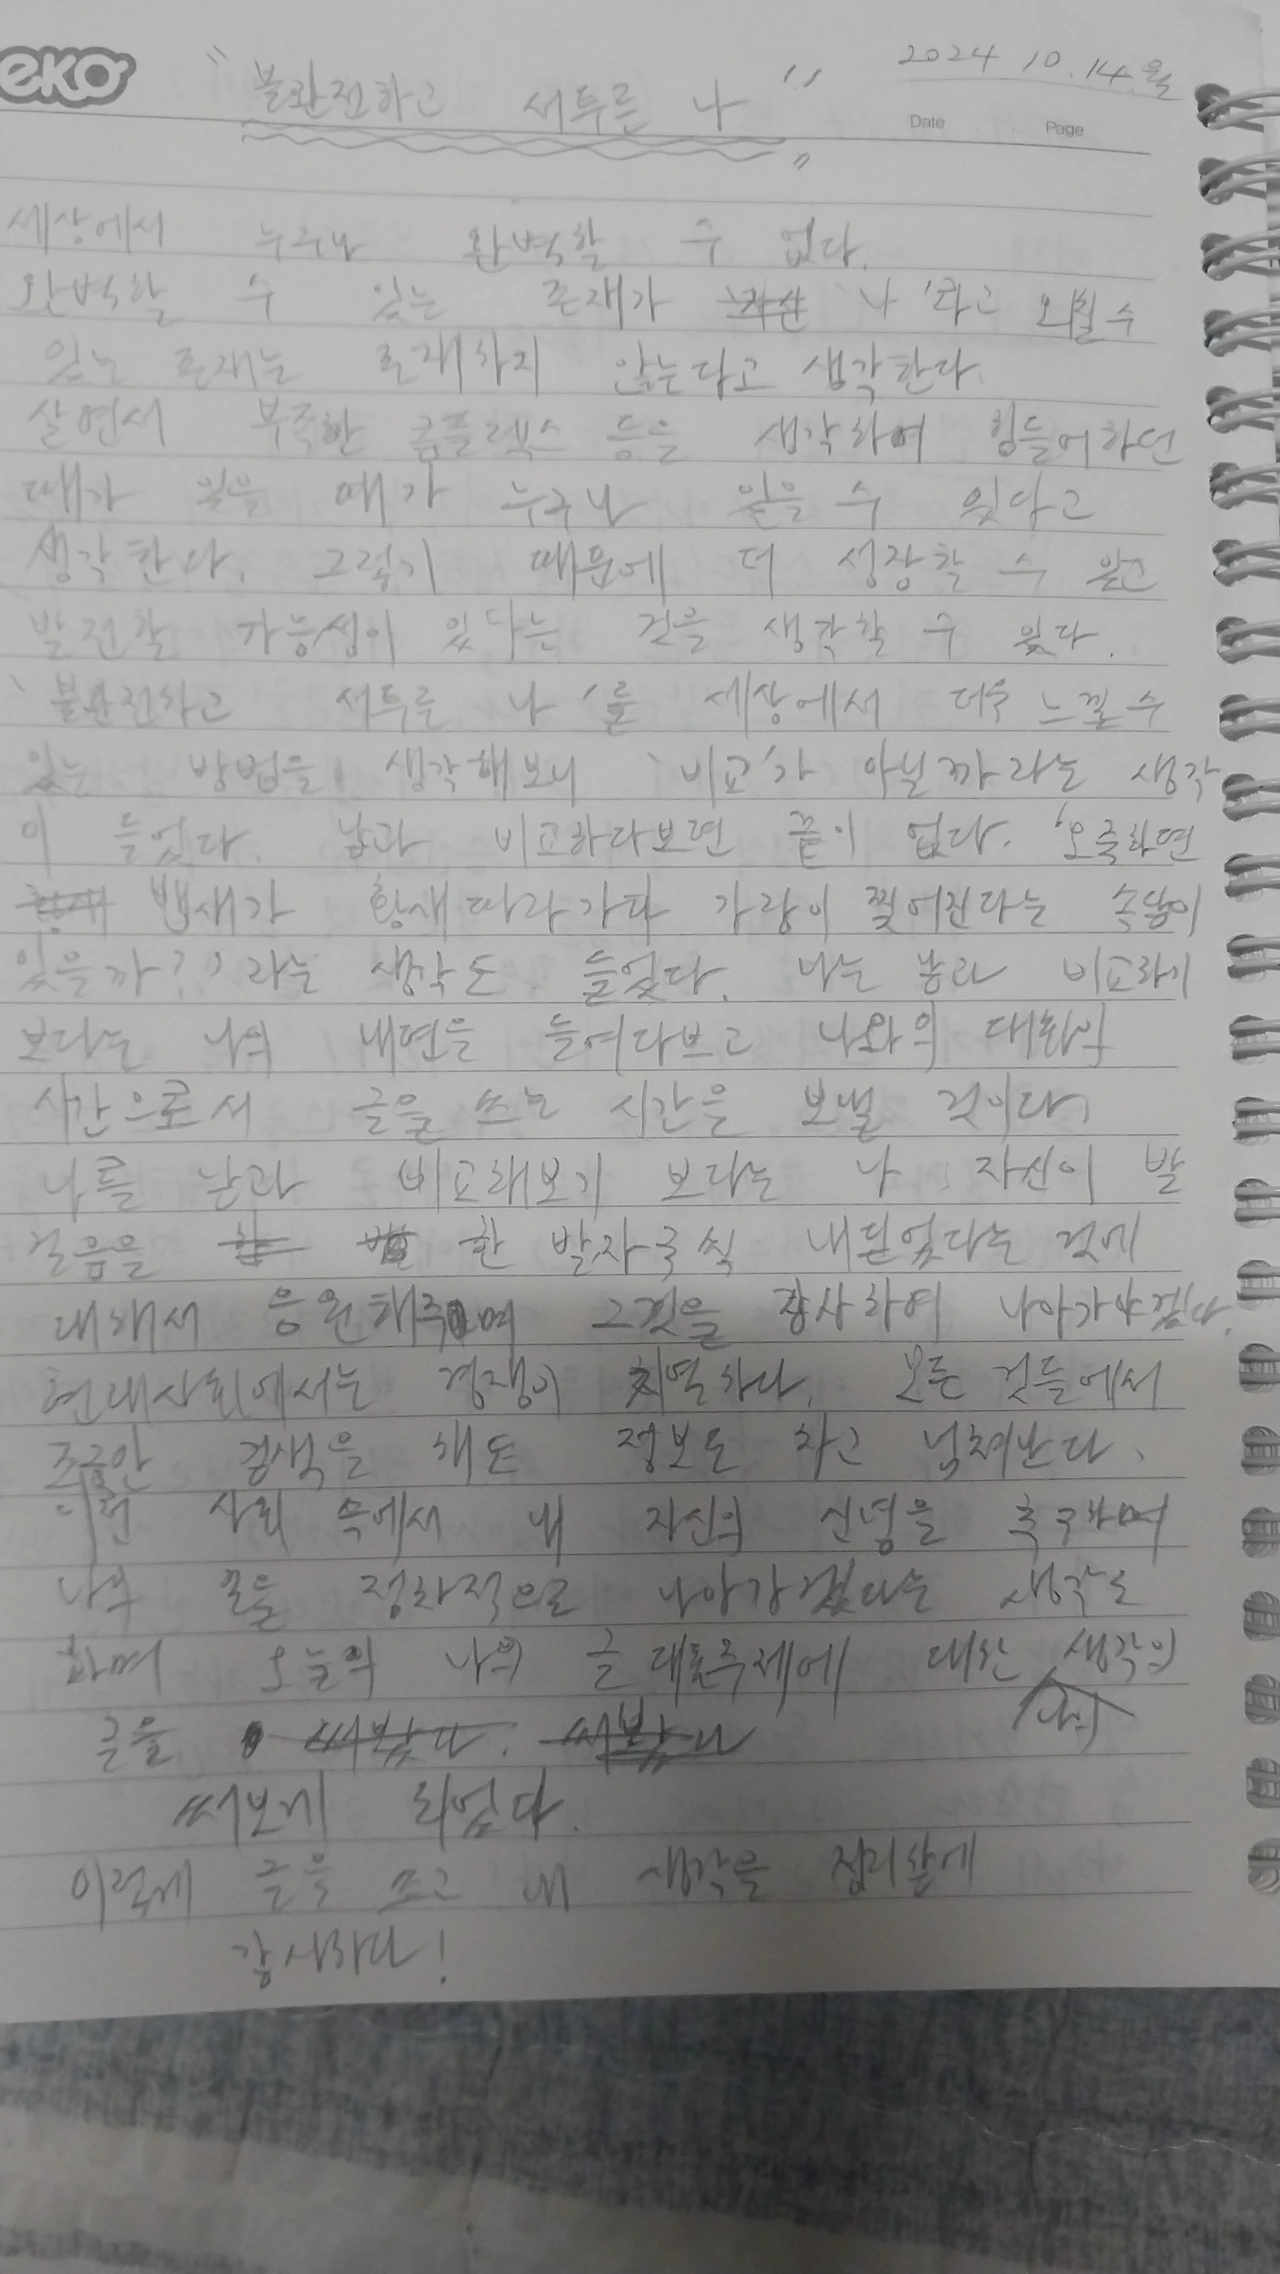 eko
2024 10.14.월
"불완전하고 서투른 나"
Date Page
세상에서 누구나 완벽할 수 없다.
완벽할 수 있는 존재가 '나'라고 외칠수
있는 존재는 존재하지 않는다고 생각한다.
살면서 부족한 콤플렉스 등을 생각하여 힘들어하던
때가 있을 때가 누구나 있을 수 있다고
생각한다. 그렇기 때문에 더 성장할 수 있고
발전할 가능성이 있다는 것을 생각할 수 있다.
'불완전하고 서투른 나'를 세상에서 더욱 느낄 수
있는 방법을 생각해보니 '비교'가 아닐까라는 생각
이 들었다. 남과 비교하다보면 끝이 없다. '오죽하면
뱁새가 황새따라가다 가랑이 찢어진다는 속담이
있을까?'라는 생각도 들었다. 나는 남과 비교하기
보다는 나의 내면을 들여다보고 나와의 대화의
시간으로서 글을 쓰는 시간을 보낼 것이다.
나를 남과 비교해보기 보다는 나 자신이 발
걸음을 한 발자국씩 내딛었다는 것에
대해서 응원해주며 그것을 감사하여 나아가야겠다.
현대사회에서는 경쟁이 치열하다. 모든 것들에서
조금만 검색을 해도 정보도 차고 넘쳐난다.
이런 사회 속에서 내 자신의 신념을 추구하며
나의 글을 정화적으로 나아가겠다는 생각도
하며 오늘의 나의 글 대표주제에 대한 나의 생각의
글을
써보게 되었다.
이렇게 글을 쓰고 내 생각을 정리함에
감사하다!